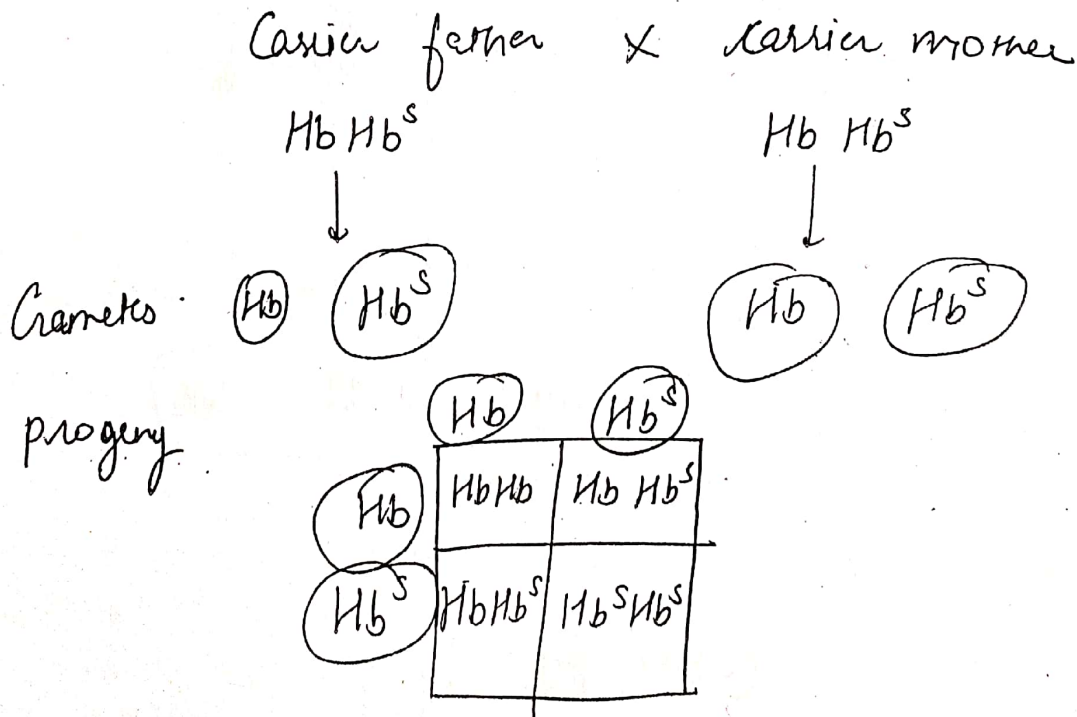 Carrier father X carrier mother
Hb Hbˢ Hb Hbˢ
Gametes Hb Hbˢ Hb Hbˢ
Hb Hbˢ
progeny
Hb HbHb Hb Hbˢ
Hbˢ HbHbˢ HbˢHbˢ